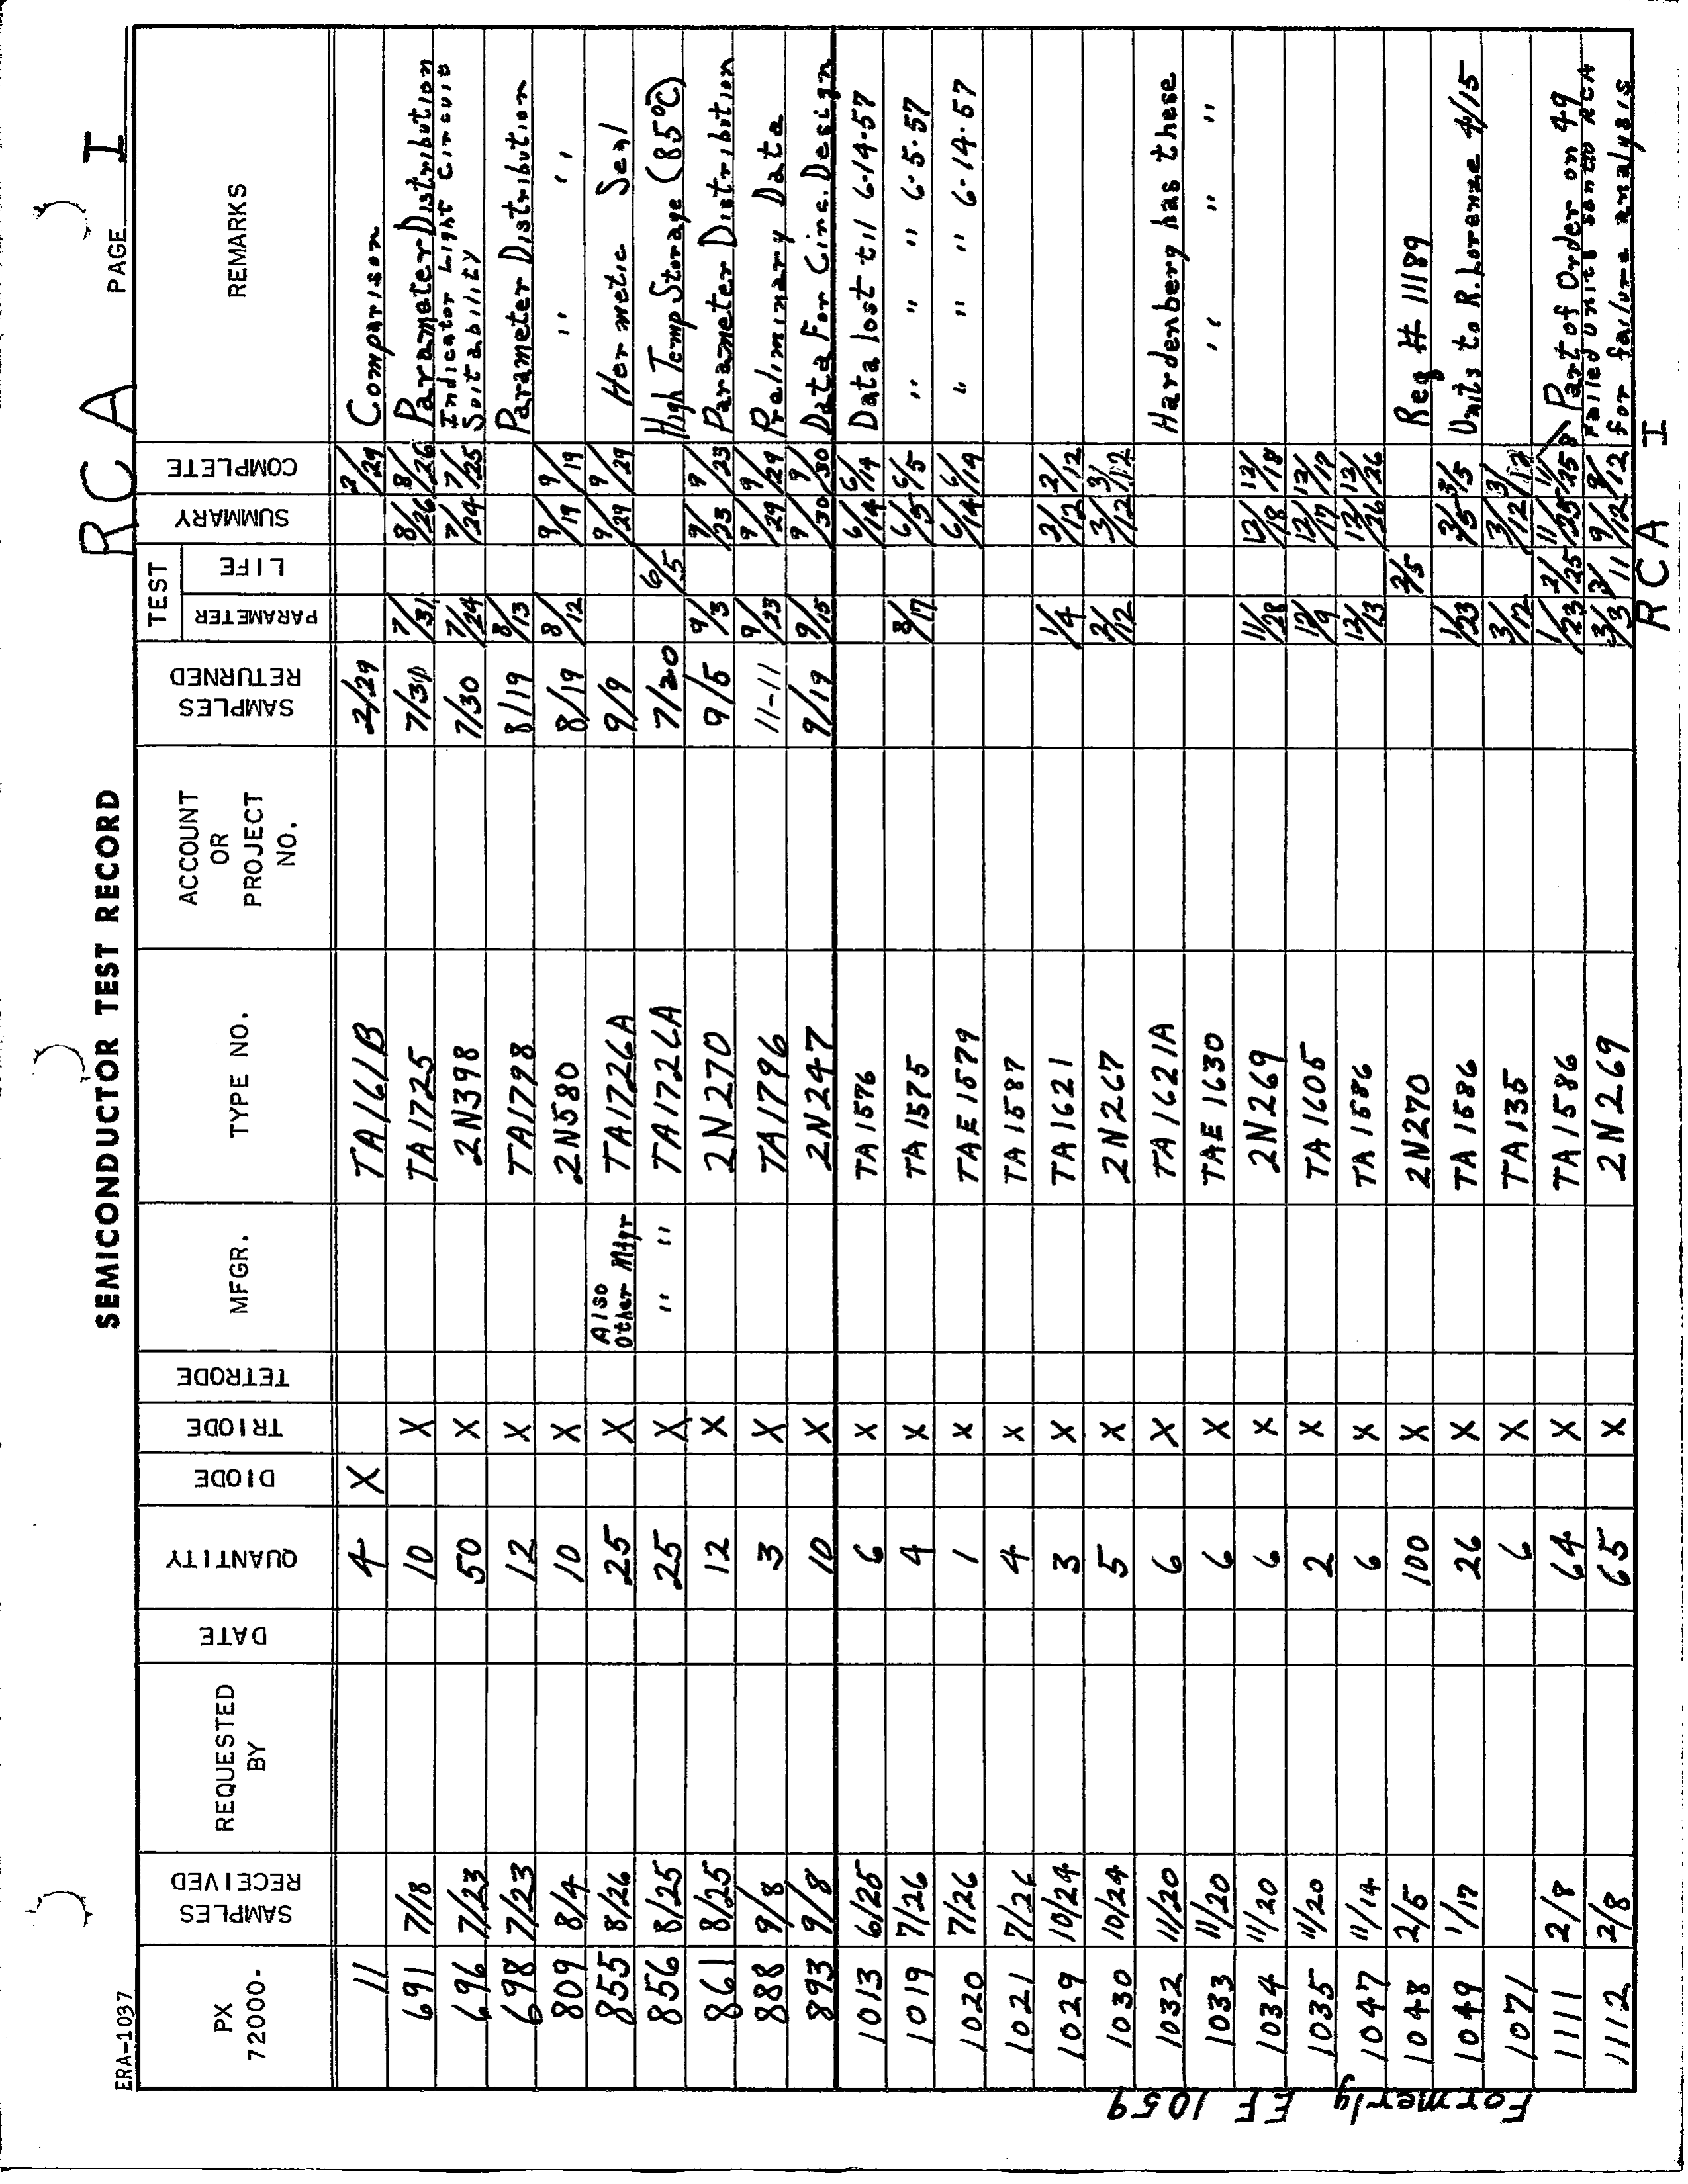 ERA-1037
SEMICONDUCTOR TEST RECORD
RCA PAGE I
PX 72000- SAMPLES RECEIVED REQUESTED BY DATE QUANTITY DIODE TRIODE TETRODE MFGR. TYPE NO. ACCOUNT OR PROJECT NO. SAMPLES RETURNED TEST PARAMETER LIFE SUMMARY COMPLETE REMARKS
11 4 X TA161B 2/29 2/29 Comparison
691 7/18 10 X TA1725 7/31 7/31 8/26 8/26 Parameter Distribution
696 7/23 50 X 2N398 7/30 7/24 7/24 7/25 Indicator Light Circuit Suitability
698 7/23 12 X TA1798 8/19 8/13 Parameter Distribution
809 8/4 10 X 2N580 8/19 8/12 9/19 9/19 " "
855 8/26 25 X Also Other Mfgr TA1726A 9/9 9/29 9/29 Hermetic Seal
856 8/25 25 X " " TA1726A 7/20 6/5 High Temp Storage (85°C)
861 8/25 12 X 2N270 9/5 9/3 9/23 9/23 Parameter Distribution
888 9/8 3 X TA1796 11-11 9/23 9/29 9/29 Preliminary Data
893 9/8 10 X 2N247 9/19 9/15 9/30 9/30 Data For Circ. Design
1013 6/25 6 X TA1576 6/14 6/14 Data lost til 6-14-57
1019 7/26 4 X TA1575 8/17 6/5 6/5 " " " 6-5-57
1020 7/26 1 X TAE1579 6/14 6/14 " " " 6-14-57
1021 7/26 4 X TA1587
1029 10/24 3 X TA1621 1/4 2/12 2/12
1030 10/24 5 X 2N267 2/12 3/12 3/12
1032 11/20 6 X TA1621A Hardenberg has these
1033 11/20 6 X TAE1630 " " "
1034 11/20 6 X 2N269 11/28 12/18 12/18
1035 11/20 2 X TA1605 12/9 12/17 12/17
1047 11/14 6 X TA1586 12/13 12/26 12/26
1048 2/5 100 X 2N270 2/5 Req # 11189
1049 1/17 26 X TA1586 1/23 3/5 3/5 Units to R. Lorenze 4/15
1071 6 X TA135 3/12 3/12 3/12
1111 2/8 64 X TA1586 1/23 2/25 11/25 11/25 Part of Order on 49
1112 2/8 65 X 2N269 3/3 3/11 9/12 9/12 Failed units sent to RCA for failure analysis
Formerly EF 1059
RCA I